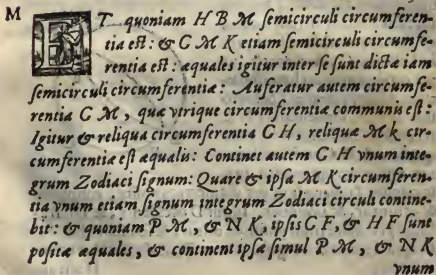 M
ET quoniam H B M semicirculi circumferen-
tia est: & C M K etiam semicirculi circumfe-
rentia est: æquales igitur inter se sunt dictæ iam
semicirculi circumferentiæ: Auferatur autem circumfe-
rentia C M, quæ vtrique circumferentiæ communis est:
Igitur & reliqua circumferentia C H, reliquæ M k cir-
cumferentiæ est æqualis: Continet autem C H vnum inte-
grum Zodiaci signum: Quare & ipsa M K circumferen-
tia vnum etiam signum integrum Zodiaci circuli contine-
bit: & quoniam P M, & N K, ipsis C F, & H F sunt
positæ æquales, & continent ipsæ simul P M, & N K
vnum